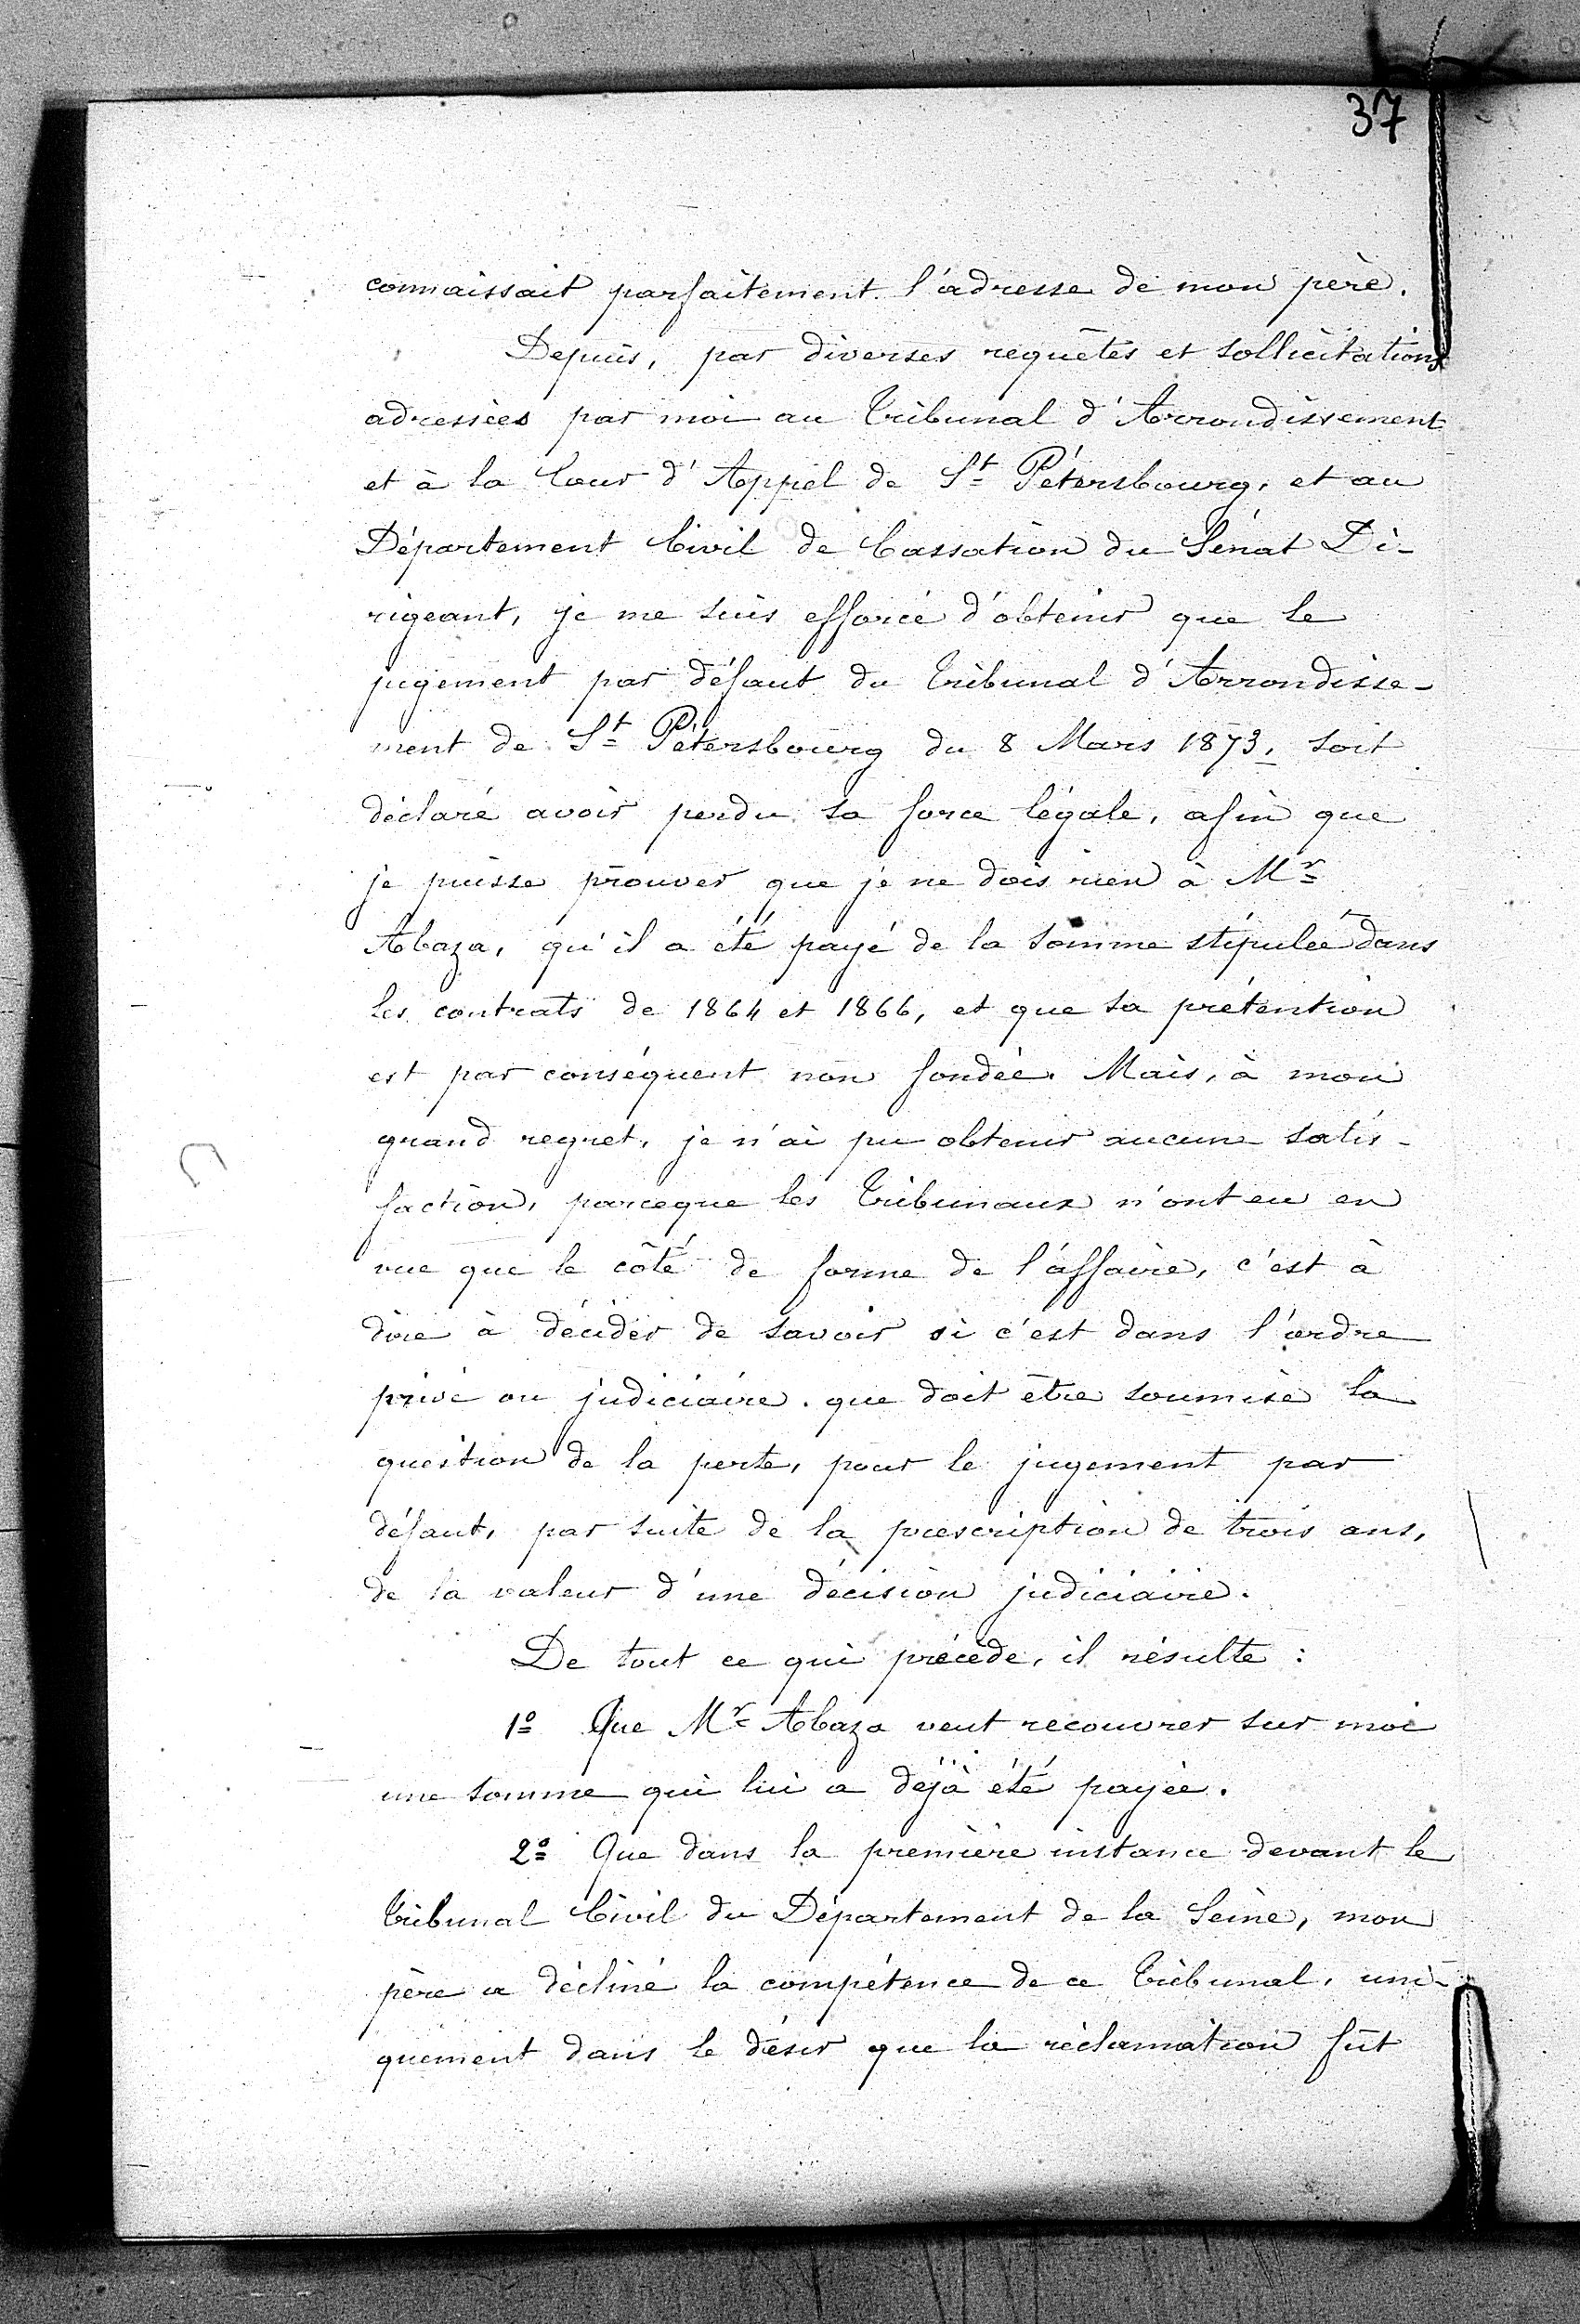 37
connaissait parfaitement l'adresse de mon père.
Depuis, par diverses requêtes et sollicitations
adressées par moi au Tribunal d'Arrondissement
et à la Cour d'Appel de St Pétersbourg, et au
Département Civil de Cassation du Sénat Di-
rigeant, je me suis efforcé d'obtenir que le
jugement par défaut du Tribunal d'Arrondisse-
ment de St Pétersbourg du 8 Mars 1873, soit
déclaré avoir perdu sa force légale, afin que
je puisse prouver que je ne dois rien à Mr
Abaza, qu'il a été payé de la somme stipulée dans
les contrats de 1864 et 1866, et que sa prétention
est par conséquent non fondée. Mais, à mon
grand regret, je n'ai pu obtenir aucune satis-
faction, parceque les Tribunaux n'ont eu en
vue que le côté de forme de l'affaire, c'est à
dire à décider de savoir si c'est dans l'ordre
privé ou judiciaire que doit être soumise la
question de la perte, pour le jugement par
défaut, par suite de la prescription de trois ans,
de la valeur d'une décision judiciaire.
De tout ce qui précède, il résulte :
1º Que Mr Abaza veut recouvrer sur moi
une somme qui lui a déjà été payée.
2º Que dans la première instance devant le
Tribunal Civil du Département de la Seine, mon
père a décliné la compétence de ce Tribunal, uni-
quement dans le désir que la réclamation fût